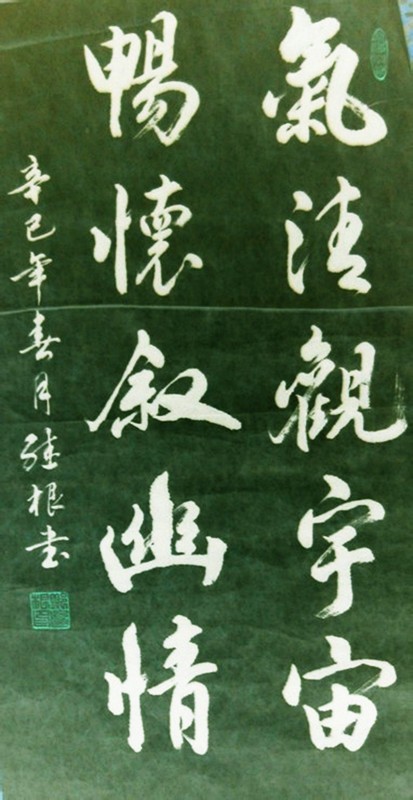 氣清觀宇宙
暢懷叙幽情
辛巳年春月根書